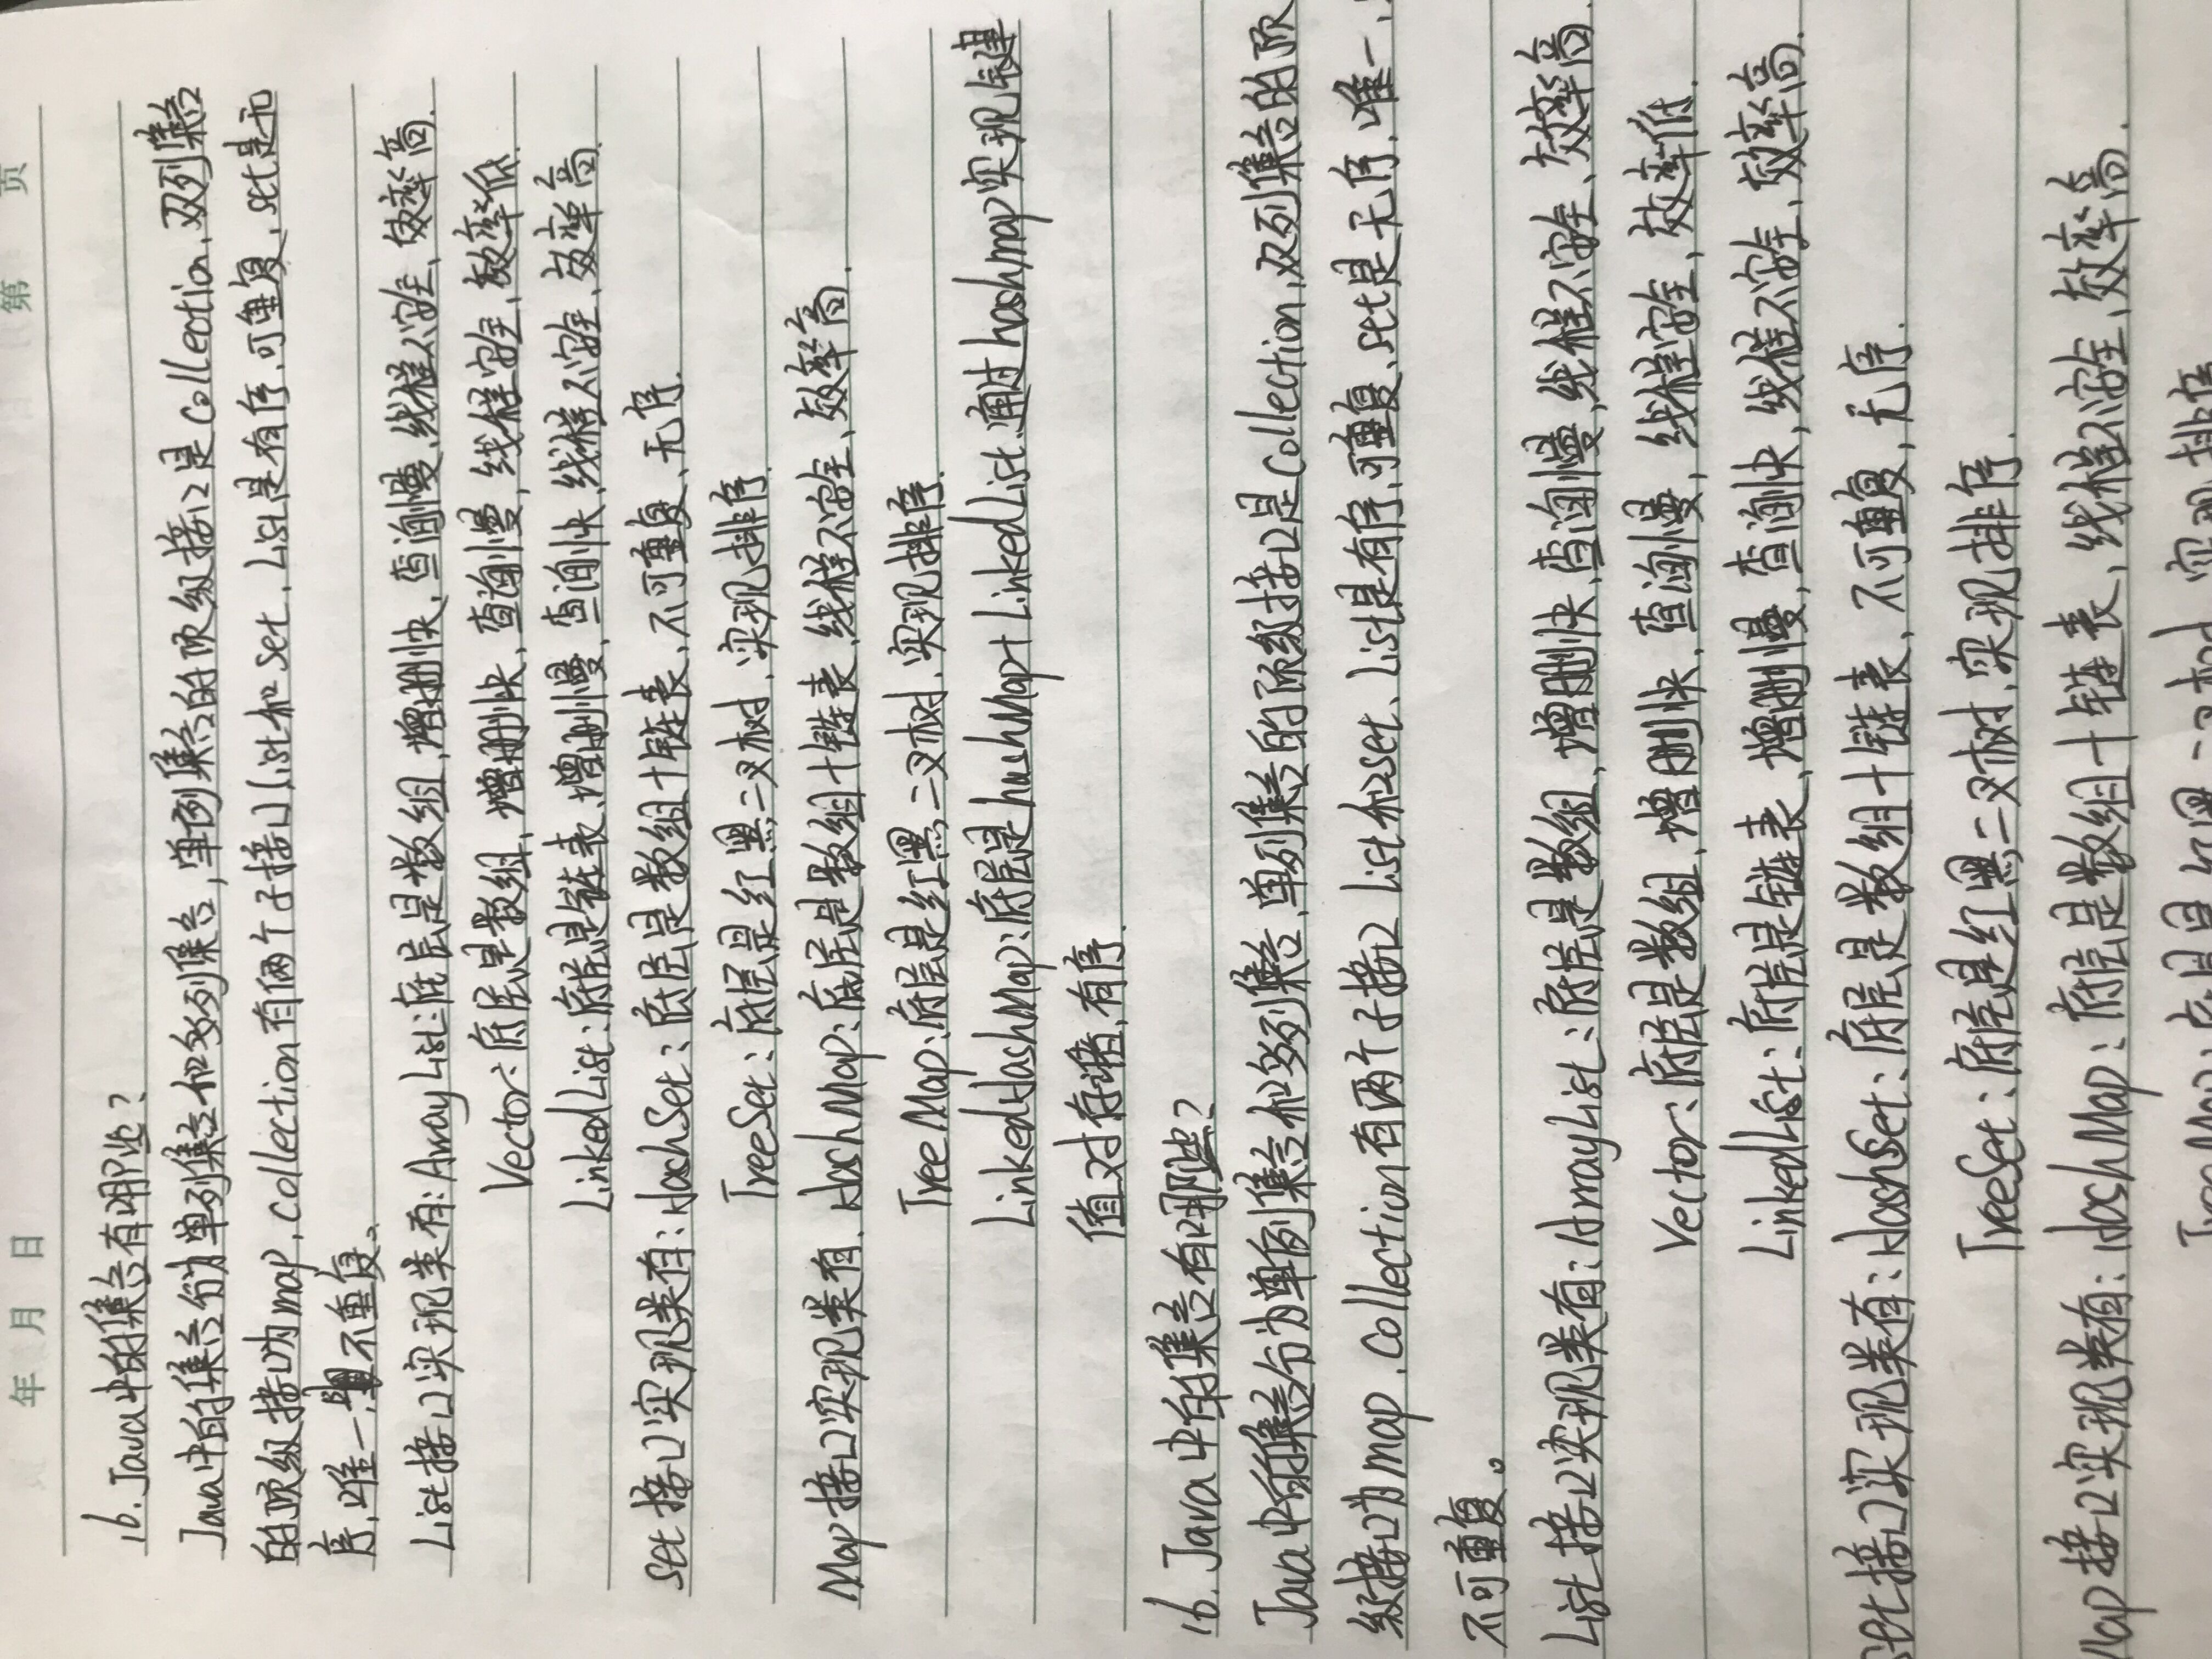 年 月 日 第 页
16. Java中的集合有哪些?
Java中的集合分为单列集合和多列集合,单例集合的顶级接口是collection,双列集合
的顶级接口为map,collection有俩个子接口list和set,List是有序,可重复,set是无
序,唯一,不重复。
List接口实现类有:ArrayList:底层是数组,增删快,查询慢,线程不安全、效率高.
Vector:底层是数组,增删快,查询慢,线程安全,效率低.
LinkedList:底层是链表、增删慢,查询快,线程不安全、效率高.
set接口实现类有:HashSet:底层是数组+链表,不可重复、无序.
TreeSet:底层是红黑二叉树,实现排序.
Map接口实现类有.HashMap:底层是数组+链表,线程不安全、效率高.
TreeMap:底层是红黑二叉树,实现排序.
LinkedHashMap:底层是hashMap+LinkedList,通过hashmap实现键
值对存诸,有序.
16. Java中的集合有哪些?
Java中的集合分为单例集合和多列集合,单列集合的顶级接口是collection,双列集合的顶
级接口为map,collection有两个子接口 list和set、list是有序,可重复、set是无序,唯一,
不可重复。
List接口实现类有:ArrayList:底层是数组,增删快,查询慢,线程不安全、效率高.
Vector:底层是数组,增删快,查询慢,线程安全,效率低.
LinkedList:底层是链表,增删慢,查询快,线程不安全,效率高.
set接口实现类有:HashSet:底层是数组+链表,不可重复,无序.
TreeSet:底层是红黑二叉树,实现排序.
Map接口实现类有:HashMap:底层是数组+链表,线程不安全,效率高.
TreeMap:底层是红黑二叉树,实现排序